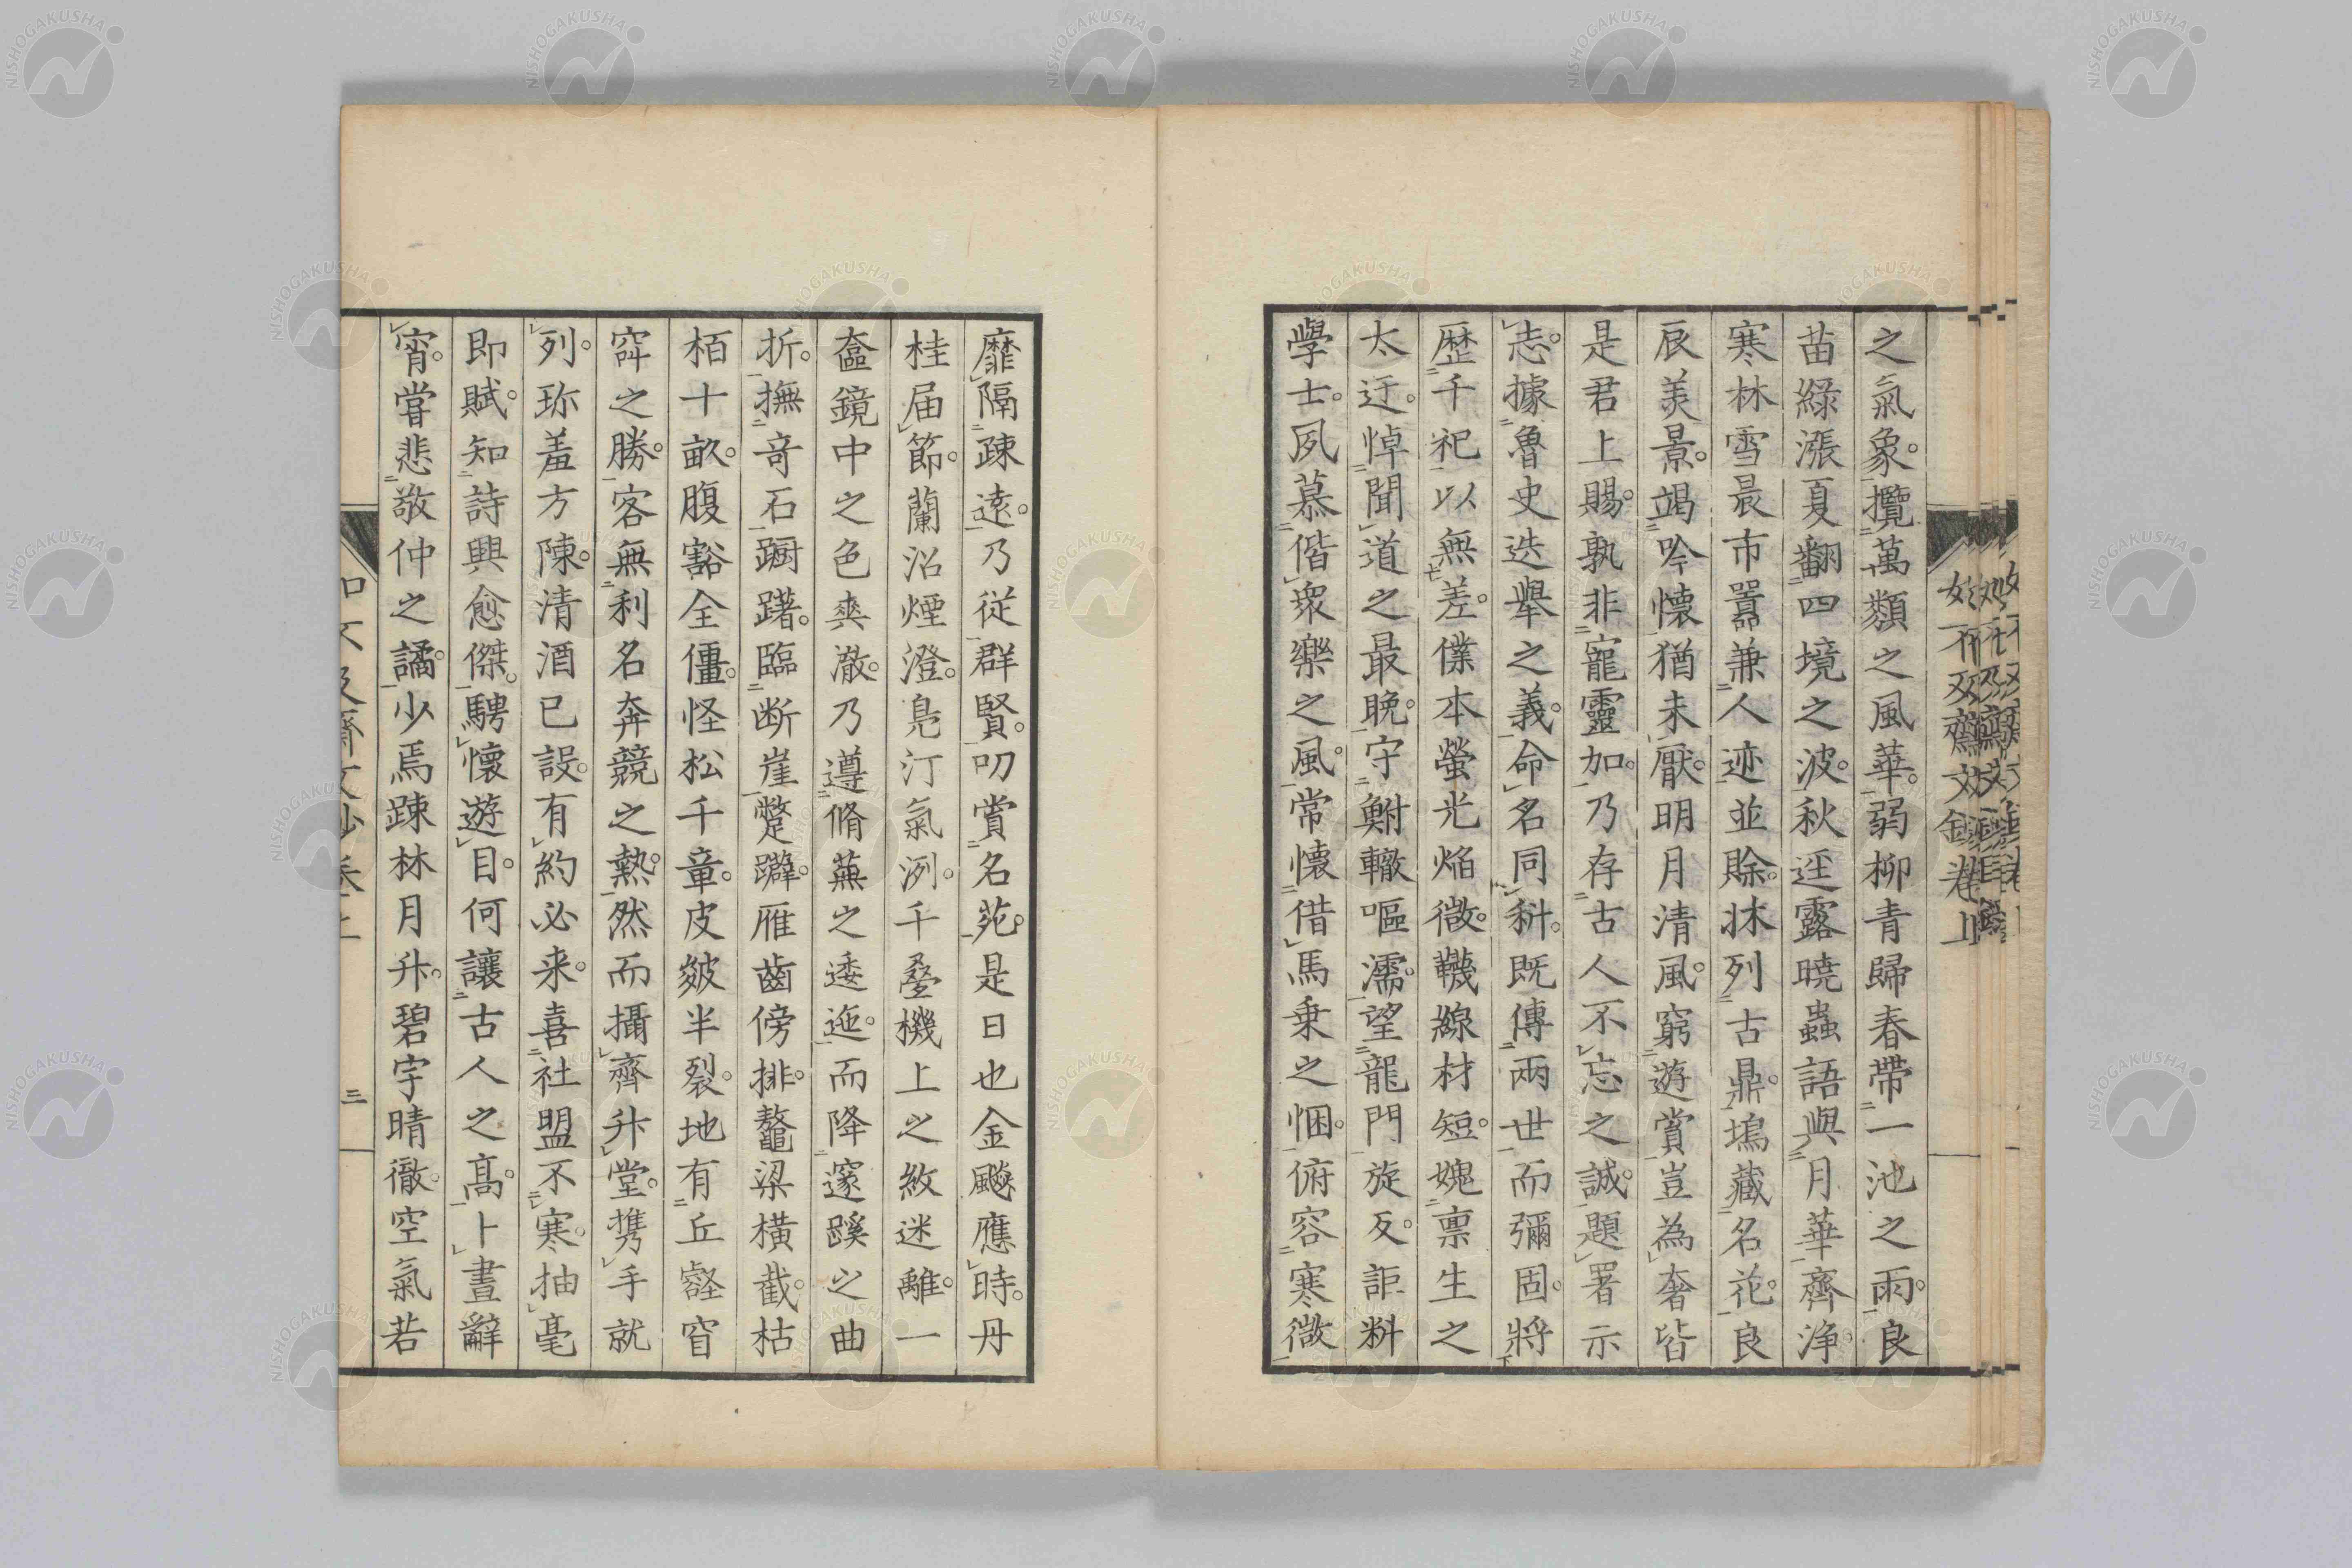 之氣象。攬萬類之風華。弱柳青歸春帶一池之雨。良
苗綠漲夏翻四境之波。秋逕露曉蟲語與月華齊淨。
寒林雪晨市囂兼人迹並賖。牀列古鼎。塢藏名花。良
辰美景。竭吟懷猶未厭。明月清風。窮遊賞豈為奢。皆
是君上賜。孰非寵靈加。乃存古人不忘之誠。題署示
志。據魯史迭舉之義。命名同科。既傳兩世而彌固。將
歷千祀以無差。僕本螢光焔微。韈線材短。媿禀生之
太迂。悼聞道之最晩。守鮒轍嘔濡。望龍門旋反。詎料
學士。夙慕偕衆樂之風。常懷借馬乗之悃。俯容寒微
靡隔疎遠。乃従群賢。叨賞名苑。是日也金飈應時。丹
桂届節。蘭沼煙澄。鳬汀氣冽。千疊機上之紋迷離。一
奩鏡中之色爽澈。乃遵脩蕪之逶迤。而降邃蹊之曲
折。撫竒石蹰躇。臨断崖蹩躃。雁齒傍排。鼇梁横截。枯
栢十畝。腹豁全僵。怪松千章。皮皴半裂。地有丘壑窅
窱之勝。客無利名奔競之熱。然而攝齊升堂。携手就
列。珎羞方陳。清酒已設。有約必来。喜社盟不寒。抽毫
即賦。知詩興愈傑。騁懷遊目。何讓古人之高。卜晝辭
宵。嘗悲敬仲之譎。少焉踈林月升。碧宇晴徹。空氣若
三
NISHOGAKUSHA